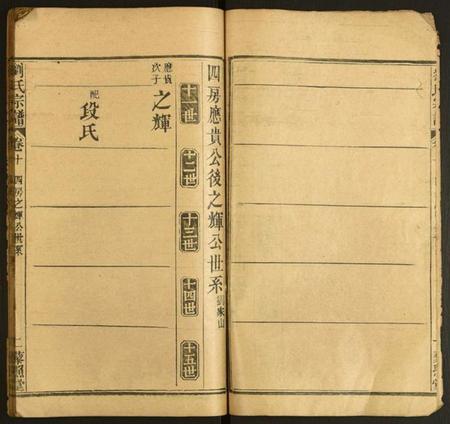 四房應貴公後之輝公世系劉家山
十一世
十二世
十三世
十四世
十五世
應貴次子
之輝
配段氏
劉氏宗譜
卷十
四房之輝公世系
二